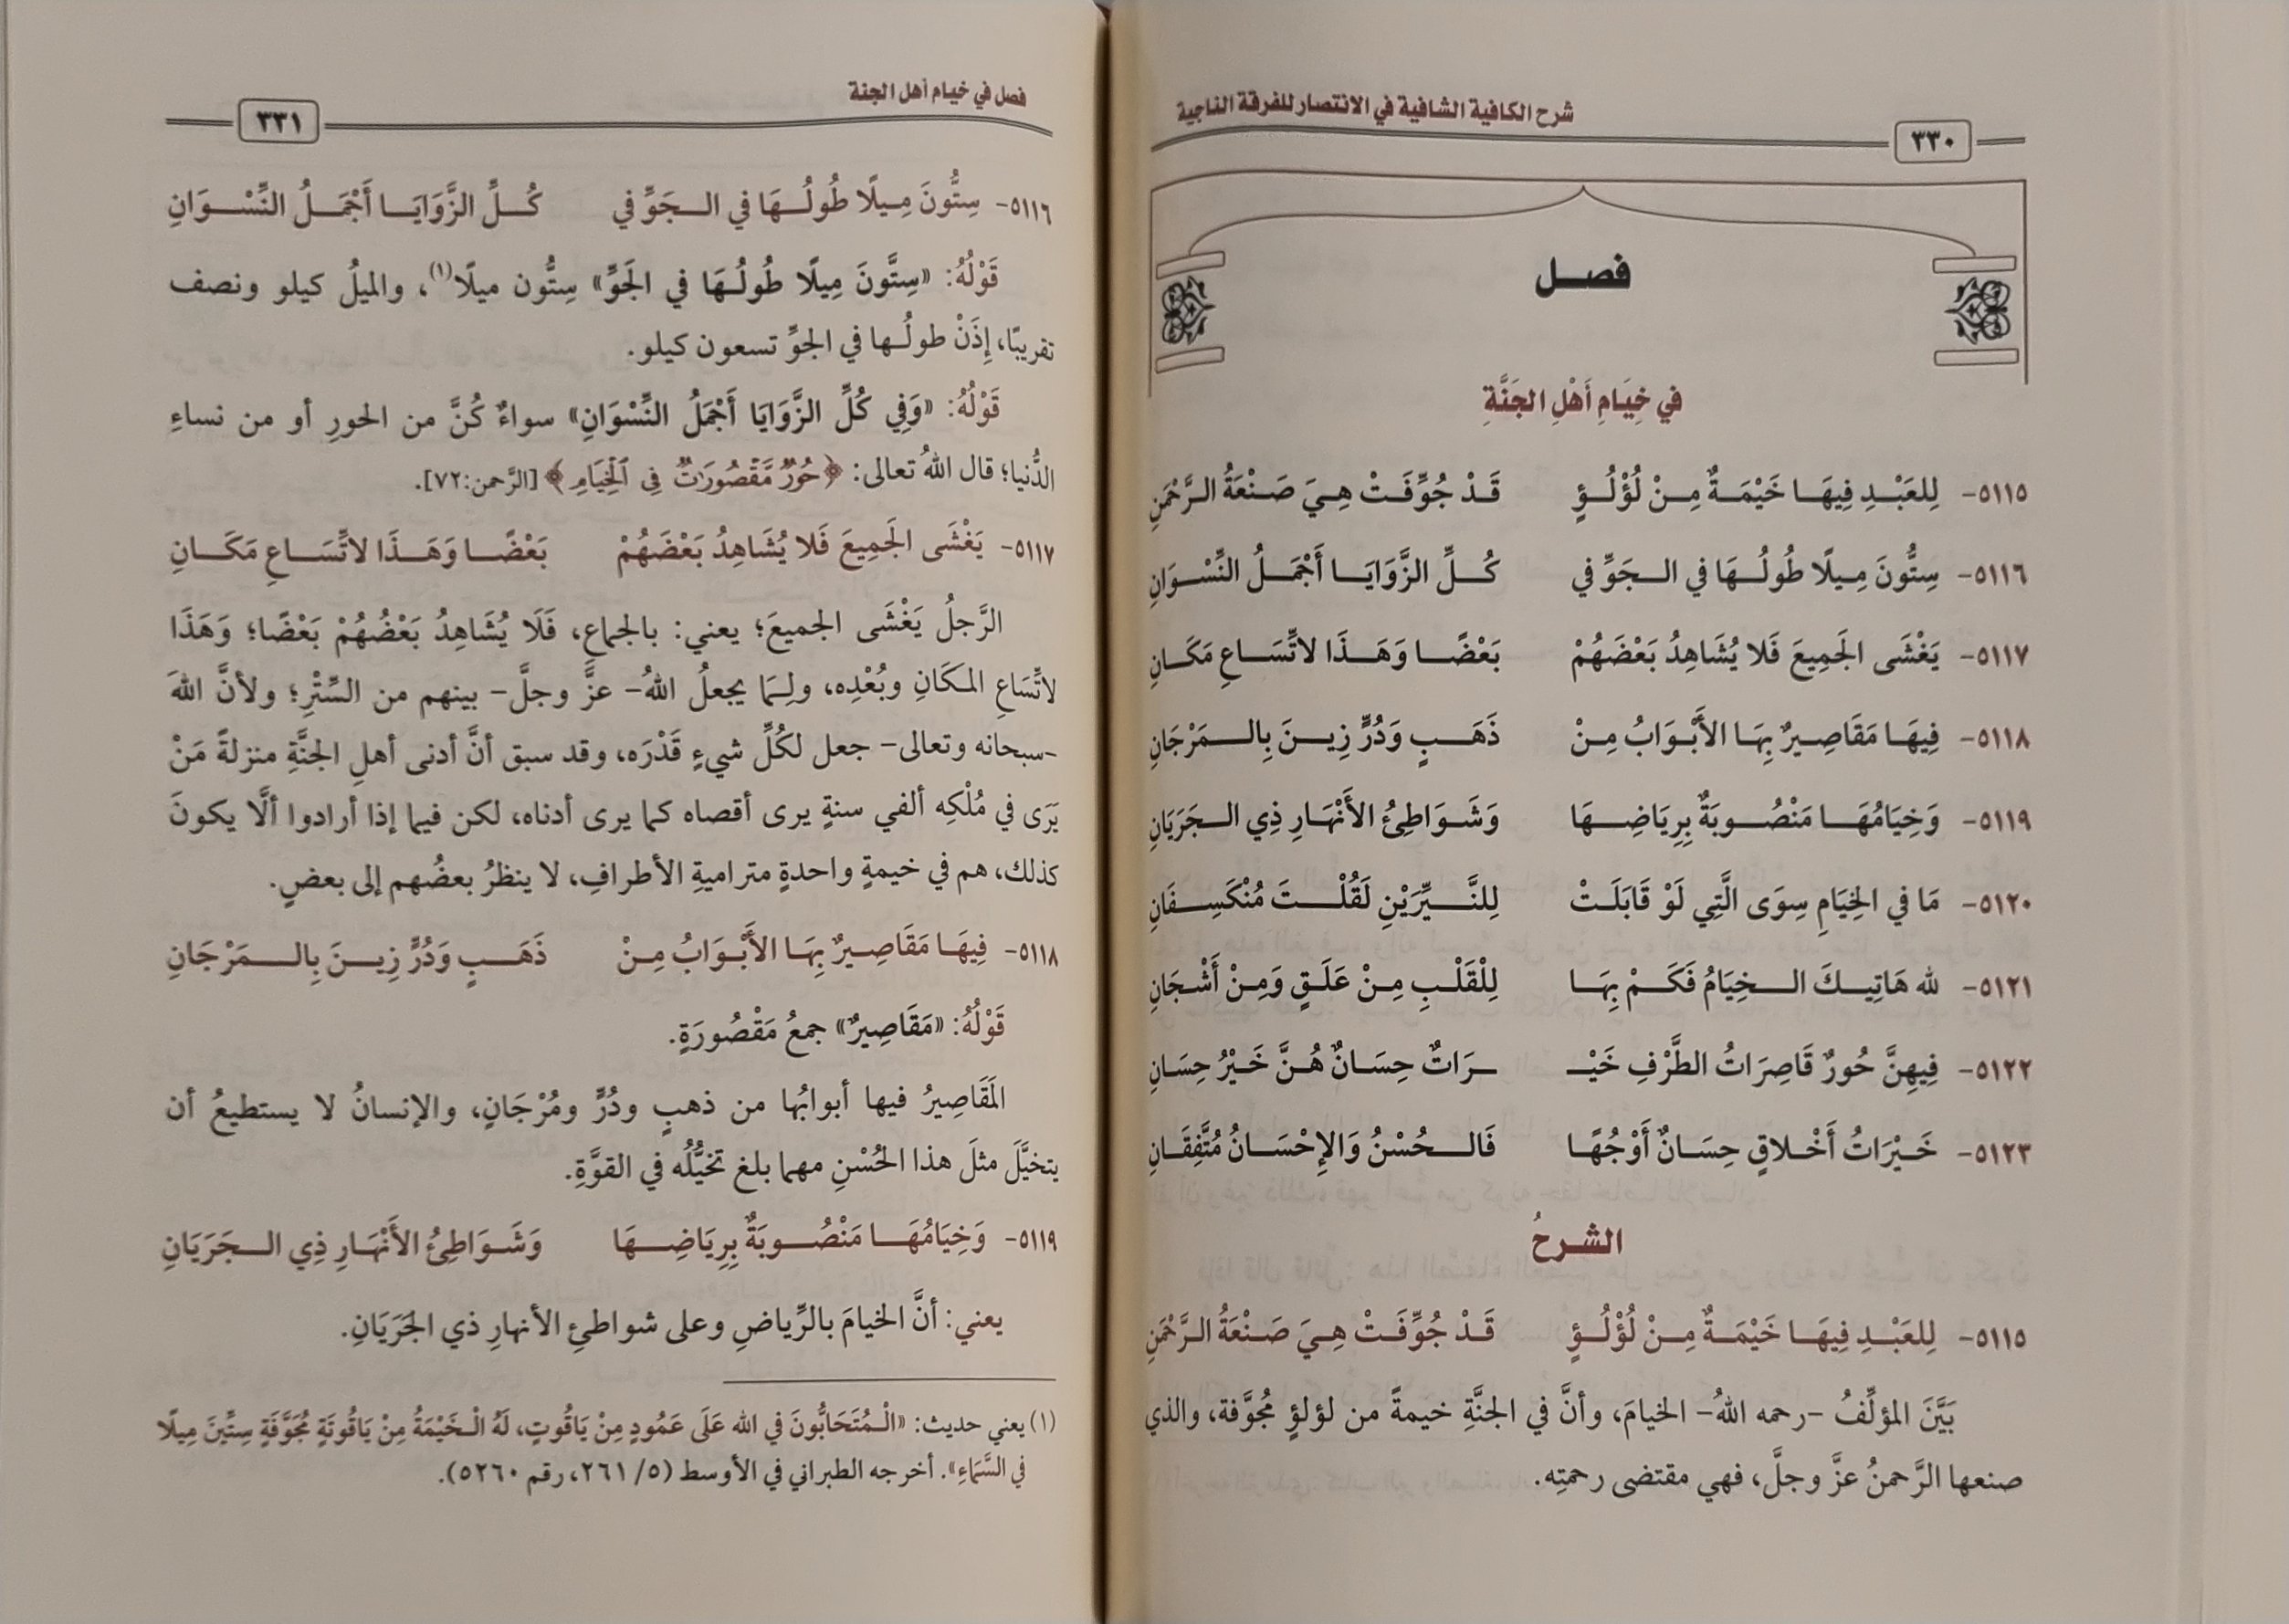 شرح الكافية الشافية في الانتصار للفرقة الناجية
٣٣٠
فصـل
في خِيَامِ أَهْلِ الجَنَّةِ
٥١١٥- لِلعَبْـدِ فِيهَـا خَيْمَـةٌ مِـنْ لُؤْلُـؤٍ قَـدْ جُوِّفَـتْ هِـيَ صَـنْعَةُ الـرَّحْمَنِ
٥١١٦- سِتُّونَ مِـيلًا طُولُـهَا في الـجَوِّ في كُـلِّ الزَّوَايَـا أَجْمَـلُ النِّسْـوَانِ
٥١١٧- يَغْشَى الجَمِيعَ فَلا يُشَاهِدُ بَعْضَهُمْ بَعْضًـا وَهَـذَا لاتِّسَـاعِ مَكَـانِ
٥١١٨- فِيهَـا مَقَاصِيرٌ بِهَا الأَبْـوَابُ مِـنْ ذَهَـبٍ وَدُرٍّ زِيـنَ بِالـمَرْجَانِ
٥١١٩- وَخِيَامُهَـا مَنْصُـوبَةٌ بِرِيَاضِـهَا وَشَـوَاطِئُ الأَنْهَـارِ ذِي الـجَرَيَانِ
٥١٢٠- مَا في الخِيَامِ سِوَى الَّتِي لَوْ قَابَلَتْ لِلنَّـيِّرَيْنِ لَقُلْـتَ مُنْكَسِـفَانِ
٥١٢١- لله هَاتِيـكَ الـخِيَامُ فَكَـمْ بِهَـا لِلْقَلْـبِ مِـنْ عَلَـقٍ وَمِـنْ أَشْـجَانِ
٥١٢٢- فِيهِنَّ حُورٌ قَاصِرَاتُ الطَّرْفِ خَيْـ ـرَاتٌ حِسَـانٌ هُـنَّ خَـيْرُ حِسَـانِ
٥١٢٣- خَـيْرَاتُ أَخْـلاقٍ حِسَـانٌ أَوْجُهًـا فَالـحُسْنُ وَالإِحْسَـانُ مُتَّفِقَـانِ
الشرحُ
٥١١٥- لِلعَبْـدِ فِيهَـا خَيْمَـةٌ مِـنْ لُؤْلُـؤٍ قَـدْ جُوِّفَـتْ هِـيَ صَـنْعَةُ الـرَّحْمَنِ
بَيَّنَ المؤلِّفُ -رحمه اللهُ- الخيامَ، وأنَّ في الجنَّةِ خيمةً من لؤلؤٍ مُجوَّفة، والذي
صنعها الرَّحمنُ عزَّ وجلَّ، فهي مقتضى رحمتِه.
فصل في خيام أهل الجنة
٣٣١
٥١١٦- سِتُّونَ مِـيلًا طُولُـهَا في الـجَوِّ في كُـلِّ الزَّوَايَـا أَجْمَـلُ النِّسْـوَانِ
قَوْلُهُ: «سِتَّونَ مِيلًا طُولُـهَا في الجَوِّ» سِتُّون ميلًا(١)، والميلُ كيلو ونصف
تقريبًا، إِذَنْ طولُـها في الجوِّ تسعون كيلو.
قَوْلُهُ: «وَفِي كُلِّ الزَّوَايَا أَجْمَلُ النِّسْوَانِ» سواءٌ كُنَّ من الحورِ أو من نساءِ
الدُّنيا؛ قال اللهُ تعالى: ﴿حُورٌ مَّقْصُورَٰتٌ فِي ٱلْخِيَامِ﴾ [الرَّحمن:٧٢].
٥١١٧- يَغْشَى الجَمِيعَ فَلا يُشَاهِدُ بَعْضَهُمْ بَعْضًـا وَهَـذَا لاتِّسَـاعِ مَكَـانِ
الرَّجلُ يَغْشَى الجميعَ؛ يعني: بالجماعِ، فَلَا يُشَاهِدُ بَعْضُهُمْ بَعْضًا؛ وَهَذَا
لاتِّسَاعِ المكَانِ وبُعْدِه، ولِـمَا يجعلُ اللهُ- عزَّ وجلَّ- بينهم من السِّتْرِ؛ ولأنَّ اللهَ
-سبحانه وتعالى- جعل لكُلِّ شيءٍ قَدْرَه، وقد سبق أنَّ أدنى أهلِ الجنَّةِ منزلةً مَنْ
يَرَى في مُلْكِه ألفي سنةٍ يرى أقصاه كما يرى أدناه، لكن فيما إذا أرادوا ألَّا يكونَ
كذلك، هم في خيمةٍ واحدةٍ متراميةِ الأطرافِ، لا ينظرُ بعضُهم إلى بعضٍ.
٥١١٨- فِيهَـا مَقَاصِـيرٌ بِهَـا الأَبْـوَابُ مِـنْ ذَهَـبٍ وَدُرٍّ زِيـنَ بِالـمَرْجَانِ
قَوْلُهُ: «مَقَاصِيرٌ» جمعُ مَقْصُورَةٍ.
المَقَاصِيرُ فيها أبوابُها من ذهبٍ ودُرٍّ ومُرْجَانٍ، والإنسانُ لا يستطيعُ أن
يتخيَّلَ مثلَ هذا الحُسْنِ مهما بلغ تخيُّلُه في القوَّةِ.
٥١١٩- وَخِيَامُهَـا مَنْصُـوبَةٌ بِرِيَاضِـهَا وَشَـوَاطِئُ الأَنْهَـارِ ذِي الـجَرَيَانِ
يعني: أنَّ الخيامَ بالرِّياضِ وعلى شواطئِ الأنهارِ ذي الجَرَيَانِ.
(١) يعني حديث: «الْـمُتَحَابُّونَ في الله عَلَى عَمُودٍ مِنْ يَاقُوتٍ، لَهُ الْـخَيْمَةُ مِنْ يَاقُوتَةٍ مُجَوَّفَةٍ سِتِّينَ مِيلًا
في السَّمَاءِ». أخرجه الطبراني في الأوسط (٥/ ٢٦١، رقم ٥٢٦٠).